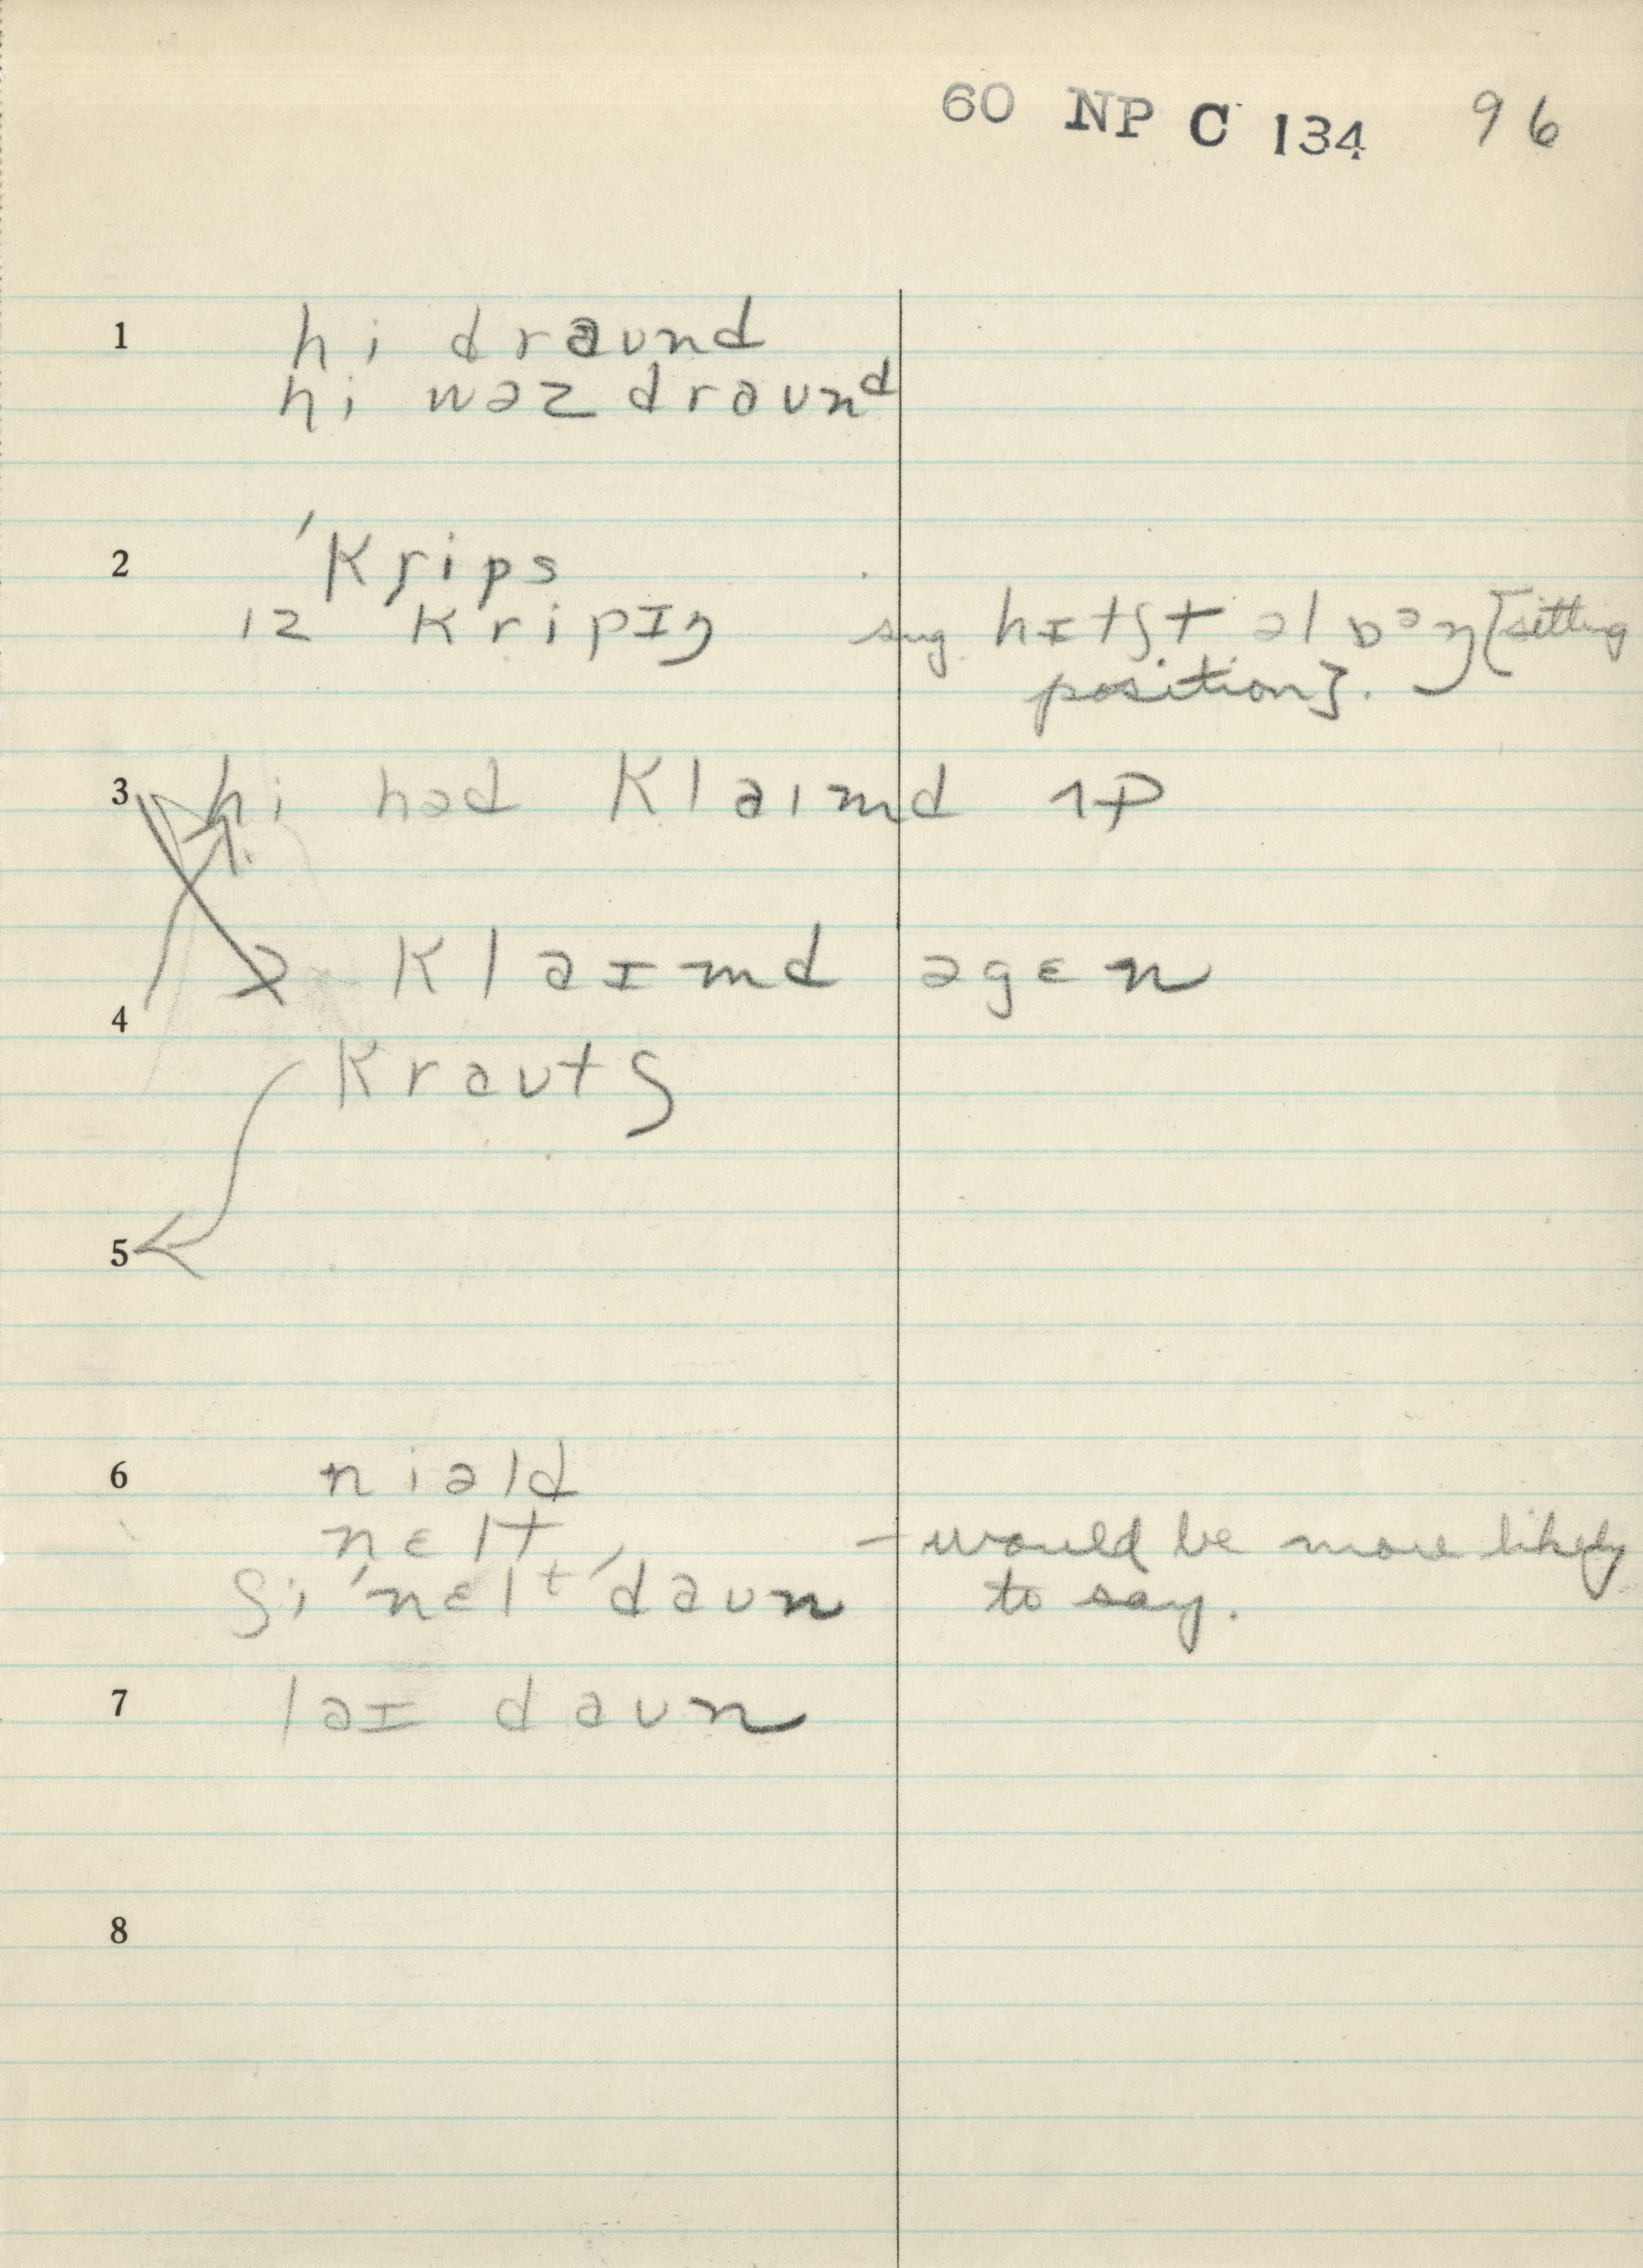 60 NP C 134 96
1 hi draʊnd
hi wəz draʊnd
2 ˈkrips
ɪz kripɪŋ sug hɪtʃt əlɔŋ [sitting
position].
3 hi həd klaɪmd ʌp
klaɪmd əgɛn
4
kraʊtʃ
5
6 niəld
nɛlt – would be more likely
ʃi ˈnɛlt ˈdaʊn to say.
7 laɪ daʊn
8